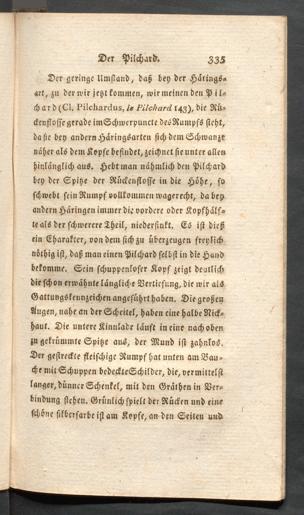 Der Pilchard. 335
Der geringe Umstand, daß bey der Härings-
art, zu der wir jezt kommen, wir meinen den Pil-
chard (Cl. Pilchardus, le Pilchard 143), die Rü-
ckenflosse gerade im Schwerpuncte des Rumpfs steht,
da sie bey andern Häringsarten sich dem Schwanze
näher als dem Kopfe befindet, zeichnet sie unter allen
hinlänglich aus. Hebt man nähmlich den Pilchard
bey der Spitze der Rückenflosse in die Höhe, so
schwebt sein Rumpf vollkommen wagerecht, da bey
andern Häringen immer die vordere oder Kopfhälf-
te als der schwerere Theil, niedersinkt. Es ist dieß
ein Charakter, von dem sich zu überzeugen freylich
nöthig ist, daß man einen Pilchard selbst in die Hand
bekomme. Sein schuppenloser Kopf zeigt deutlich
die schon erwähnte längliche Vertiefung, die wir als
Gattungskennzeichen angeführt haben. Die großen
Augen, nahe an der Scheitel, haben eine halbe Nick-
haut. Die untere Kinnlade läuft in eine nach oben
zu gekrümmte Spitze aus, der Mund ist zahnlos.
Der gestreckte fleischige Rumpf hat unten am Bau-
che mit Schuppen bedeckte Schilder, die, vermittelst
langer, dünner Schenkel, mit den Gräthen in Ver-
bindung stehen. Grünlich spielt der Rücken und eine
schöne silberfarbe ist am Kopfe, an den Seiten und